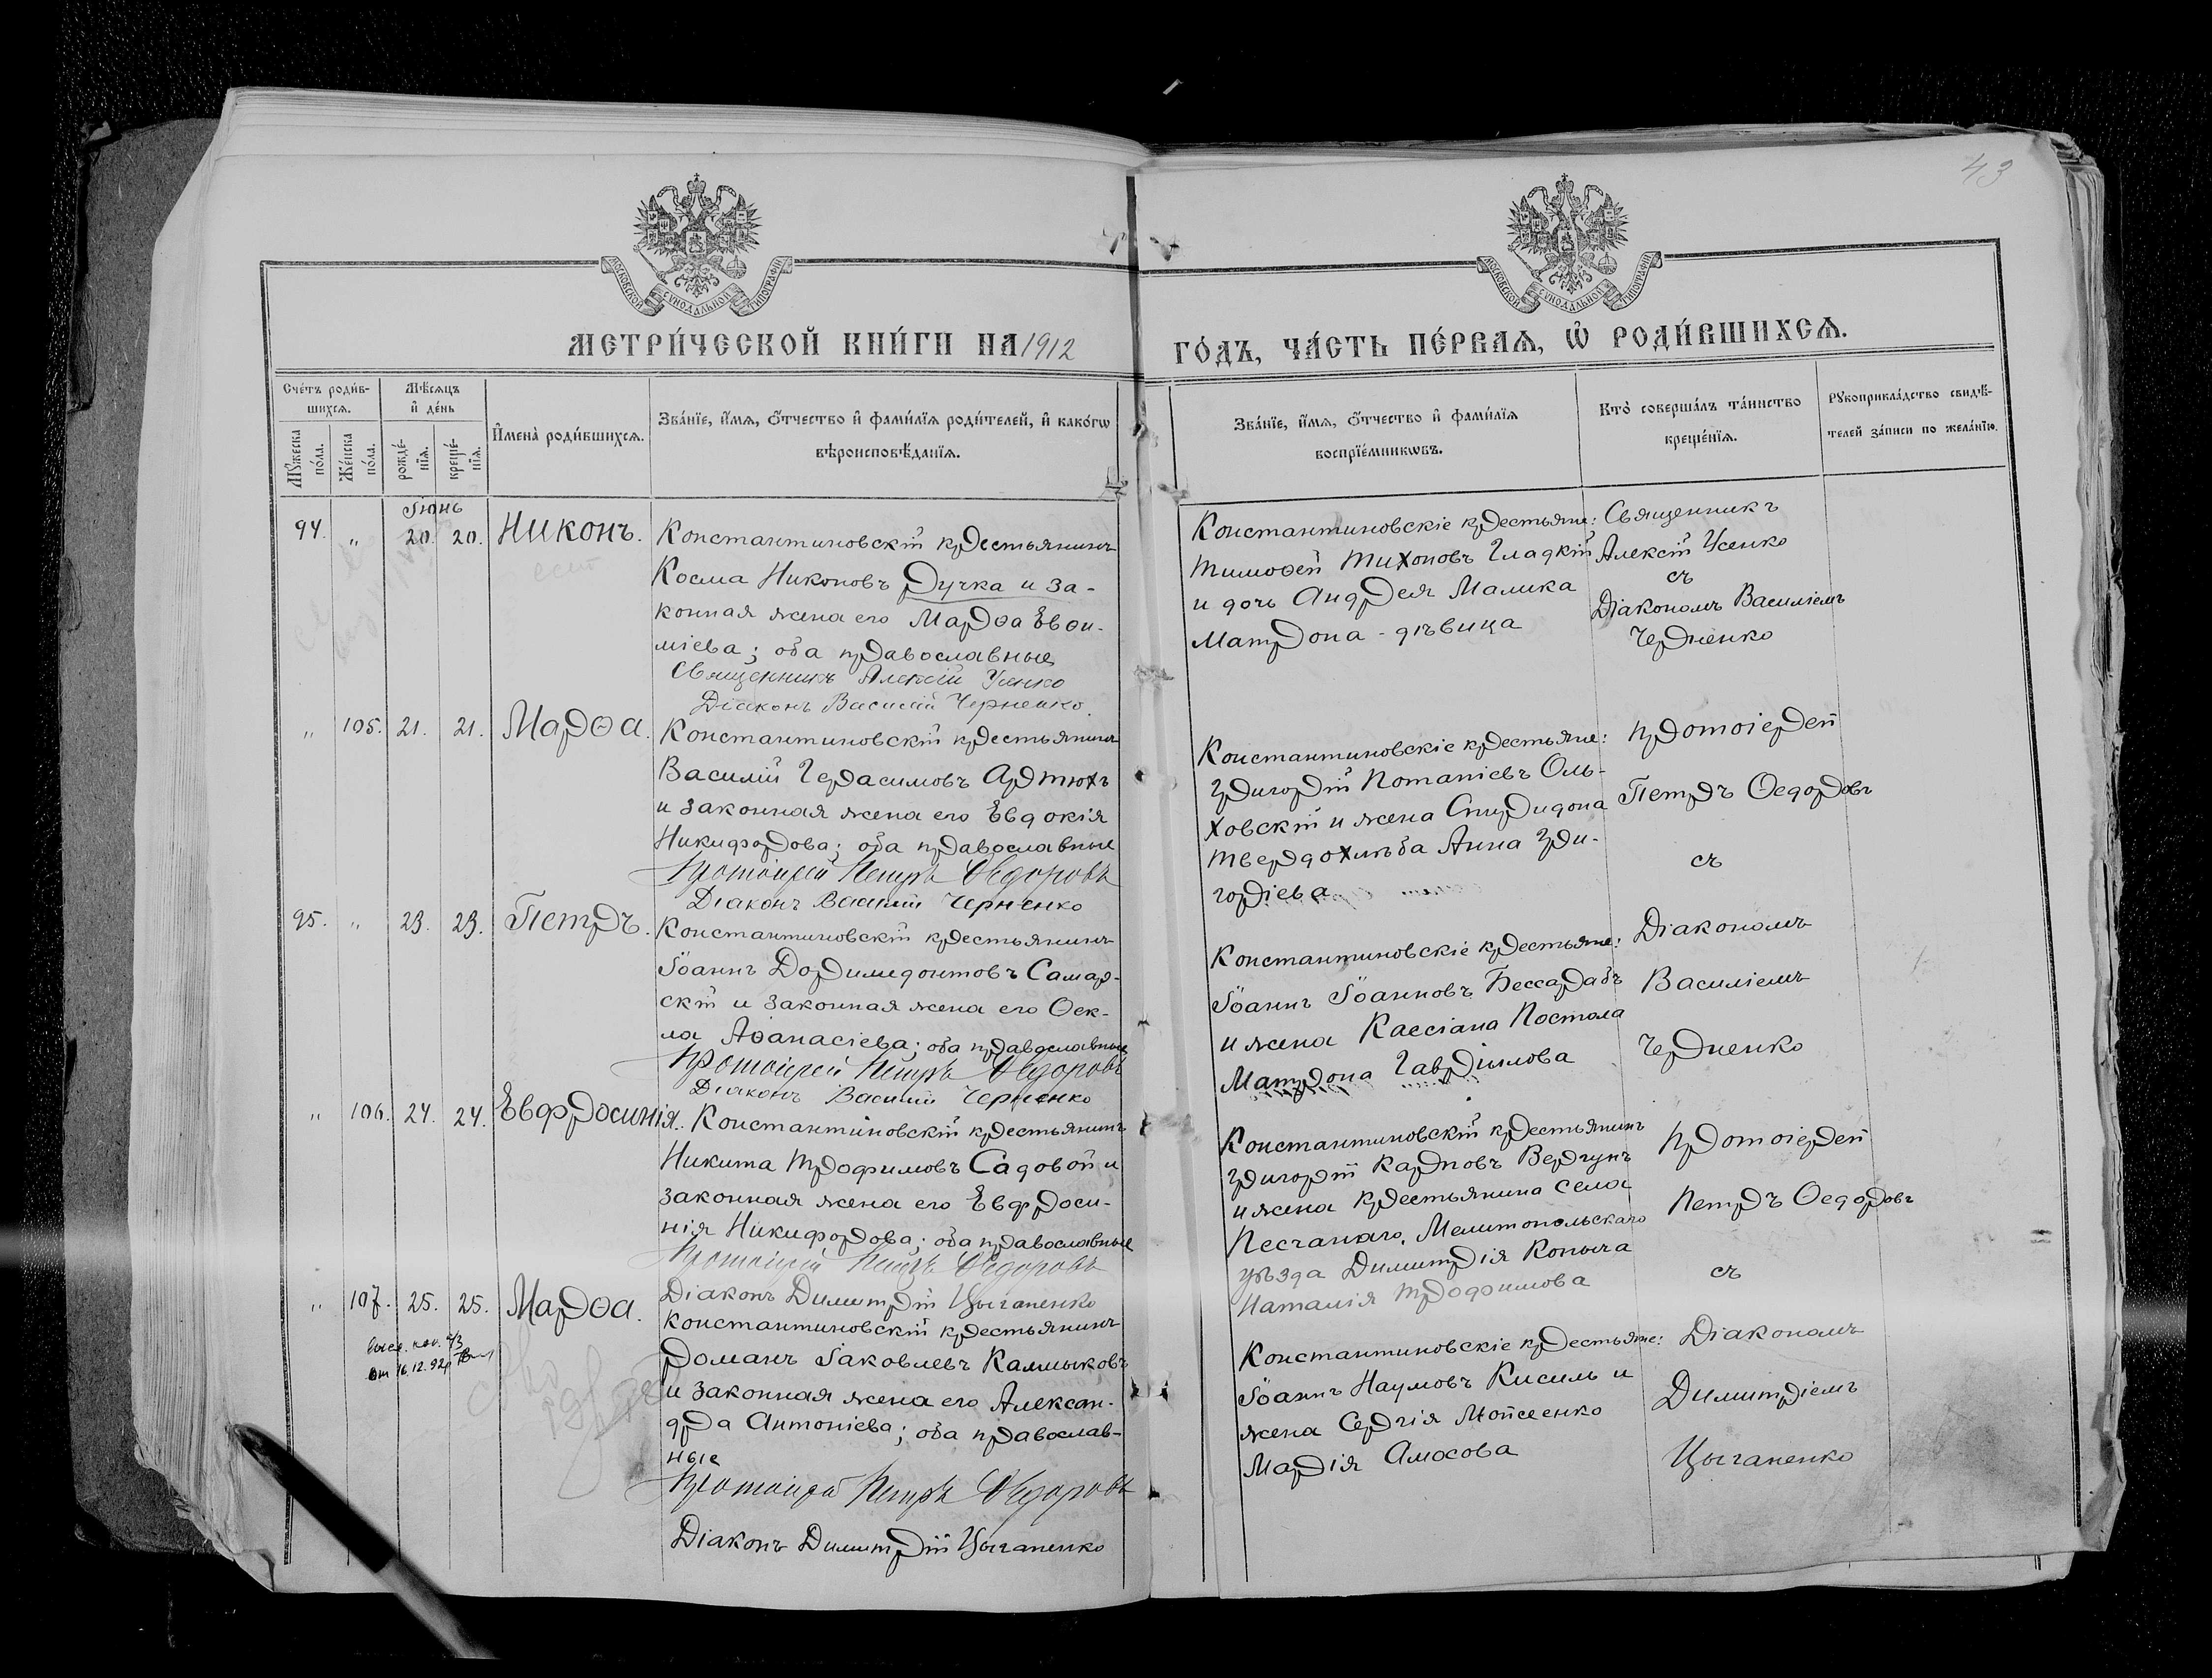 43
МОСКОВСКОЙ СѴНОДАЛЬНОЙ ТИПОГРАФІИ
МОСКОВСКОЙ СѴНОДАЛЬНОЙ ТИПОГРАФІИ
МЕТРИ́ЧЕСКОЙ КНИ́ГИ НА 1912
ГО́ДЪ, ЧА́СТЬ ПЕ́РВАѦ, Ѡ҆ РОДИ́ВШИХСѦ.
Сче́тъ роди́в-
шихсѧ.
Мѣ́сѧцъ
и҆ де́нь
Мꙋ́жеска по́ла.
Же́нска по́ла.
рожде́-
нїѧ.
креще́-
нїѧ.
И҆мена̀ роди́вшихсѧ.
Зва́нїе, и҆́мѧ, ѻ҆́тчество и҆ фами́лїѧ роди́телей, и҆ како́гѡ
вѣроисповѣ́данїѧ.
Зва́нїе, и҆́мѧ, ѻ҆́тчество и҆ фами́лїѧ
воспрїе́мникѡвъ.
Кто̀ соверша́лъ та́инство
креще́нїѧ.
Рꙋкоприкла́дство свидѣ́-
телей за́писи по жела́нїю.
Іюнь
94. „ 20. 20. Никонъ.
Константиновскій крестьянинъ
Косма Никоновъ Ручка и за-
конная жена его Марѳа Евѳи-
міева; оба православные
Священникъ Алексій Усенко
Діаконъ Василій Черненко
Константиновскіе крестьяне:
Тимоѳей Тихоновъ Гладкій
и дочь Андрея Малика
Матрона - дѣвица
Священникъ
Алексій Усенко
съ
Діакономъ Василіемъ
Черненко
„ 105. 21. 21. Марѳа.
Константиновскій крестьянинъ
Василій Герасимовъ Артюхъ
и законная жена его Евдокія
Никифорова; оба православные
Протоіерей Петръ Ѳедоровъ
Діаконъ Василій Черненко
Константиновскіе крестьяне:
Григорій Потапіевъ Оль-
ховскій и жена Спиридона
Твердохлѣба Анна Гри-
горіева
Протоіерей
Петръ Ѳедоровъ
съ
Діакономъ
Василіемъ
Черненко
95. „ 23. 23. Петръ.
Константиновскій крестьянинъ
Іоаннъ Доримедонтовъ Самар-
скій и законная жена его Ѳек-
ла Аѳанасіева; оба православные
Протоіерей Петръ Ѳедоровъ
Діаконъ Василій Черненко
Константиновскіе крестьяне:
Іоаннъ Іоанновъ Бессарабъ
и жена Кассіана Постола
Матрона Гавріилова
„ 106. 24. 24. Евфросинія.
Константиновскій крестьянинъ
Никита Трофимовъ Садовой и
законная жена его Евфроси-
нія Никифорова; оба православные
Протоіерей Петръ Ѳедоровъ
Діаконъ Димитрій Цыганенко
Константиновскій крестьянинъ
Григорій Карповъ Вергунъ
и жена крестьянина села
Песчанаго, Мелитопольскаго
уѣзда Димитрія Копыча
Наталія Трофимова
Протоіерей
Петръ Ѳедоровъ
съ
Діакономъ
Димитріемъ
Цыганенко
„ 107. 25. 25. Марѳа.
Константиновскій крестьянинъ
Романъ Іаковлевъ Калмыковъ
и законная жена его Алексан-
дра Антоніева; оба православ-
ные
Протоіерей Петръ Ѳедоровъ
Діаконъ Димитрій Цыганенко
Константиновскіе крестьяне:
Іоаннъ Наумовъ Кисиль и
жена Сергія Мойсеенко
Марія Амосова